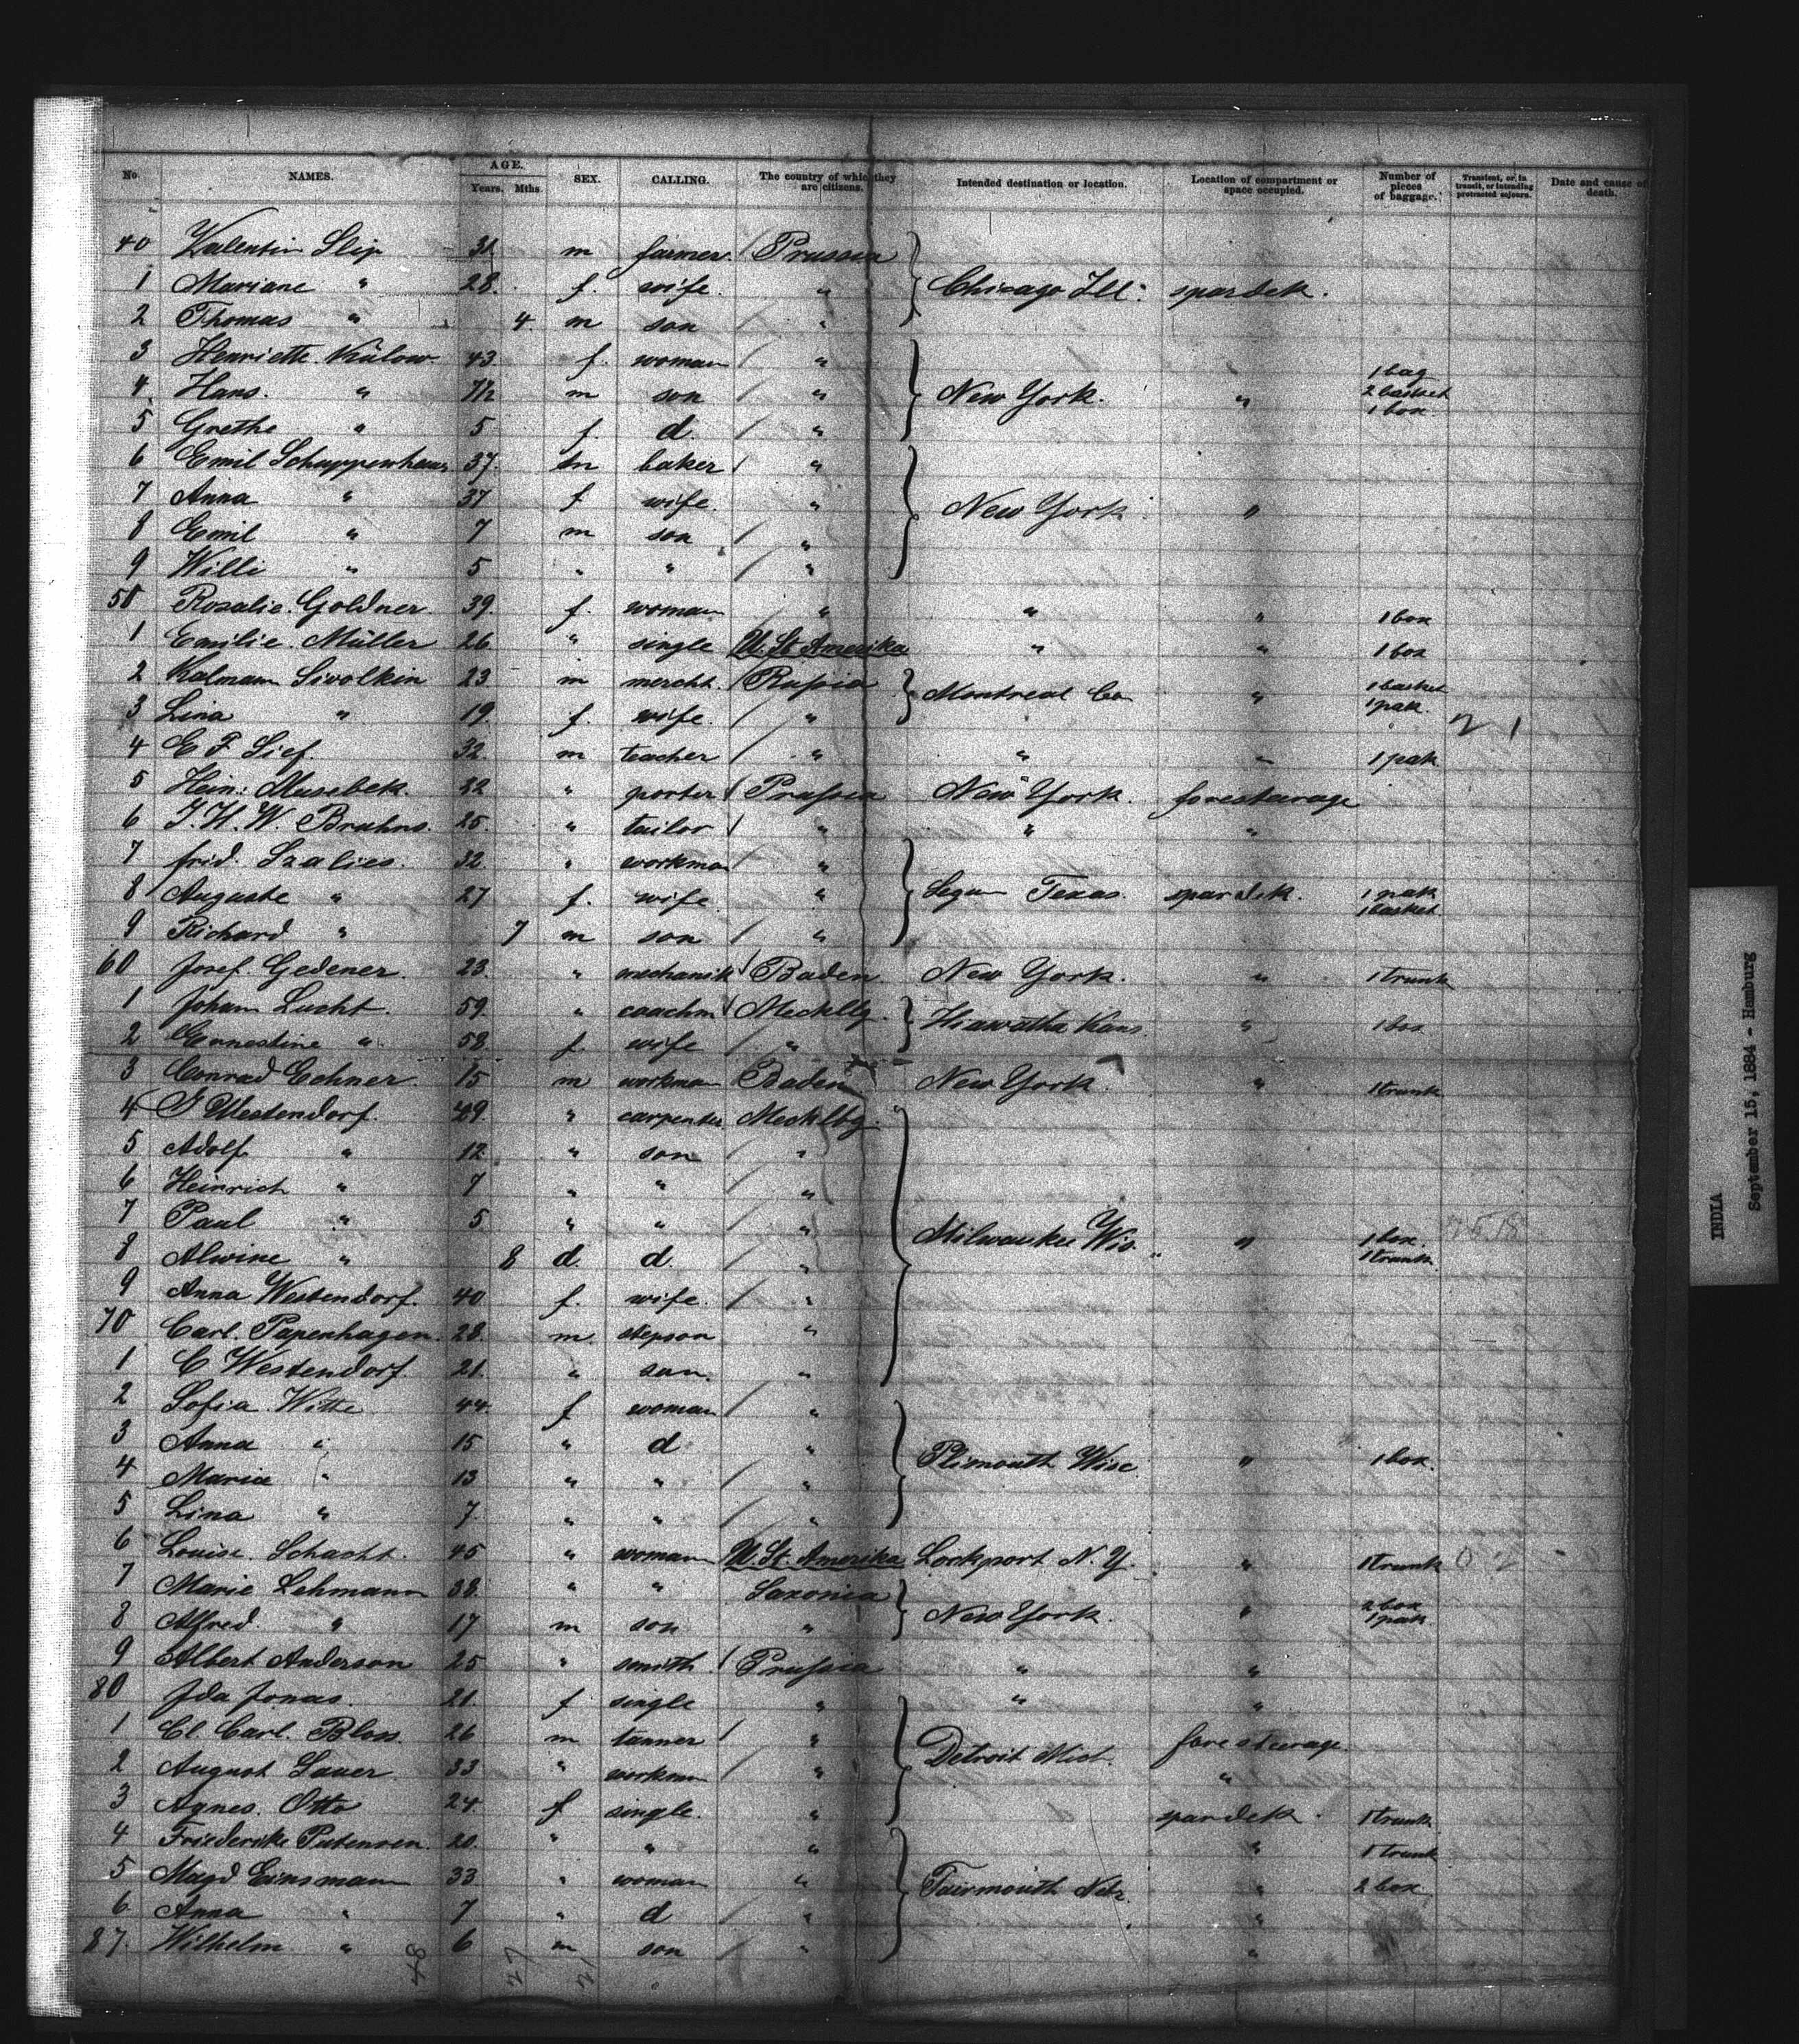 No. NAMES. AGE. Years. Mths. SEX. CALLING. The country of which they are citizens. Intended destination or location. Location of compartment or space occupied. Number of pieces of baggage. Transient, or in transit, or intending protracted sojourn. Date and cause of death.
40 Valentin Slip 31 m farmer Prussia
1 Mariane " 28 f. wife " Chicago Ill. spardek.
2 Thomas " 4 m son "
3 Henriette Külow 43 f. woman "
4 Hans " 7½ m son " New York. " 1 bag 2 basket 1 box
5 Grethe " 5 f. d. "
6 Emil Schuppenhaus 37 m baker "
7 Anna " 37 f wife " New York "
8 Emil " 7 m son "
9 Willi " 5 " " "
50 Rosalie Goldner 39 f. woman " " " 1 box
1 Emilie Müller 26 " single U. St. Amerika " " 1 box
2 Kalmann Sivolkin 23 m mercht. Russia Montreal Ca " 1 basket 1 pak.
3 Lina " 19 f. wife " 2 1
4 E F Sief. 32 m teacher " " " 1 pak
5 Hein: Musebek 32 " porter Prussia New York. foresteerage
6 J. H. W. Bruhns 25 " tailor " " "
7 frid. Szalies 32 " workman "
8 Auguste " 27 f. wife " Segun Texas. spardek. 1 pak 1 basket
9 Richard " 7 m son "
60 Josef Gedener 23 " mechanik Baden New York. " 1 trunk
1 Johann Lucht 59 " coachm Mecklbg. Hiawatha Kans " 1 box
2 Ernestine " 58 f. wife "
3 Conrad Echner 15 m workman Baden New York " 1 trunk
4 J Westendorf. 49 " carpenter Mecklbg.
5 Adolf " 12 " son "
6 Heinrich " 7 " " "
7 Paul " 5 " " " Milwaukee Wis. " 1 box. 1 trunk
8 Alwine " 8 d. d. "
9 Anna Westendorf. 40 f. wife "
70 Carl. Papenhagen. 28 m. stepson "
1 C Westendorf. 21 " son. "
2 Sofia Witte 44 f woman "
3 Anna " 15 " d "
4 Maria " 13 " " " Plimouth Wisc " 1 box.
5 Lina " 7 " " "
6 Louise Schacht. 45 " woman U. St. Amerika Lockport N. Y. " 1 trunk 0 2
7 Marie Lehmann 38 " " Saxonia
8 Alfred " 17 m son " New York. " 2 box 1 pak
9 Albert Anderson 25 " smith Prussia " "
80 Ida Jonas. 21 f single " " "
1 Cl. Carl. Bloss 26 m tanner " foresteerage
2 August Sauer 33 " workman " Detroit Mich. "
3 Agnes. Otto 24 f single. " spardek. 1 trunk
4 Friederike Putensen 20 " " " " 1 trunk
5 Magd Einsmann 33 " woman " Fairmouth Neb. " 2 box
6 Anna " 7 " d " "
87 Wilhelm " 6 m son " "
48 27 21
INDIA
September 15, 1884 - Hamburg